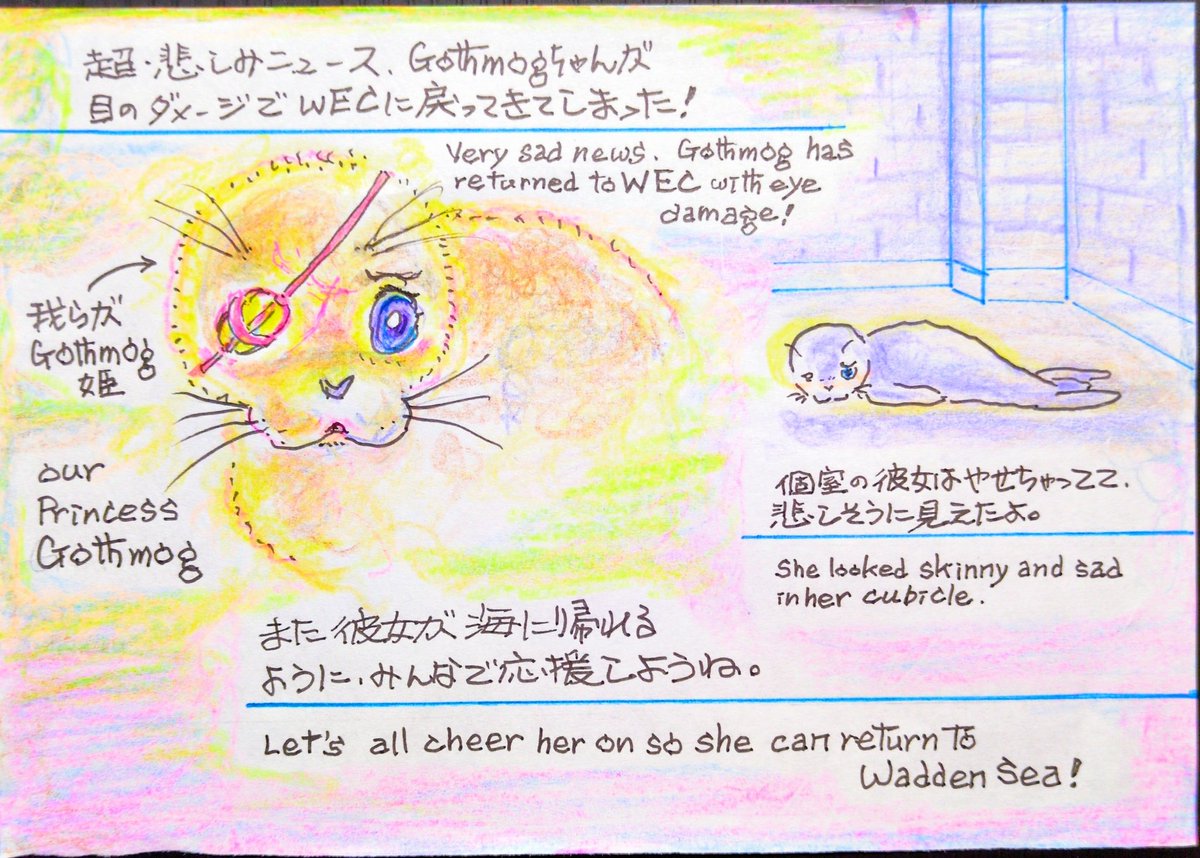 超・悲しみニュース、Gothmogちゃんが
目のダメージでWECに戻ってきてしまった!
Very sad news. Gothmog has
returned to WEC with eye
damage!
我らが
Gothmog
姫
our
Princess
Gothmog
個室の彼女はやせちゃってて、
悲しそうに見えたよ。
She looked skinny and sad
in her cubicle.
また彼女が海に帰れる
ように、みんなで応援しようね。
Let's all cheer her on so she can return to
Wadden Sea!